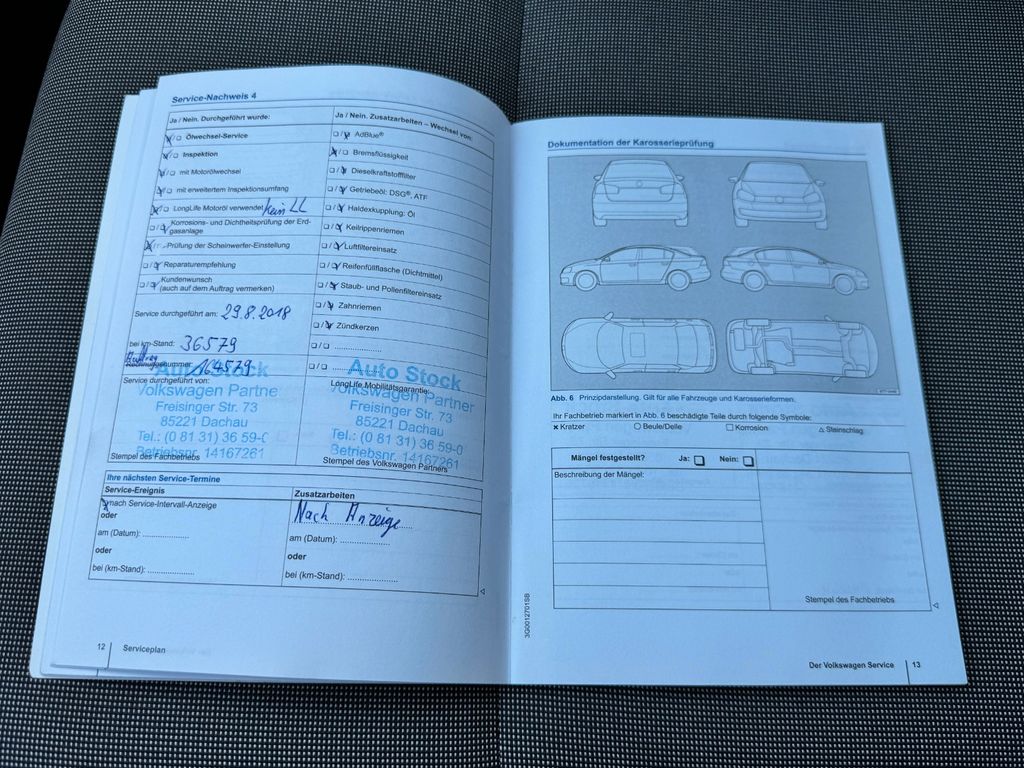 Service-Nachweis 4
Ja / Nein. Durchgeführt wurde:
Ölwechsel-Service
Inspektion
mit Motorölwechsel
mit erweitertem Inspektionsumfang
LongLife Motoröl verwendet kein LL
Korrosions- und Dichtheitsprüfung der Erd-
gasanlage
Prüfung der Scheinwerfer-Einstellung
Reparaturempfehlung
Kundenwunsch
(auch auf dem Auftrag vermerken)
Service durchgeführt am: 29.8.2018
bei km-Stand: 36579
Auftrag
Rechnungsnummer: 164579
Service durchgeführt von:
Auto Stock
Volkswagen Partne
Freisinger Str. 73
85221 Dachau
Tel.: (0 81 31) 36 59-0
Betriebsnr. 14167261
Stempel des Fachbetriebs
Ja / Nein. Zusatzarbeiten – Wechsel von:
AdBlue®
Bremsflüssigkeit
Dieselkraftstofffilter
Getriebeöl: DSG®, ATF
Haldexkupplung: Öl
Keilrippenriemen
Luftfiltereinsatz
Reifenfüllflasche (Dichtmittel)
Staub- und Pollenfiltereinsatz
Zahnriemen
Zündkerzen
LongLife Mobilitätsgarantie:
Auto Stock
Volkswagen Partner
Freisinger Str. 73
85221 Dachau
Tel.: (0 81 31) 36 59-0
Betriebsnr. 14167261
Stempel des Volkswagen Partners
Ihre nächsten Service-Termine
Service-Ereignis
nach Service-Intervall-Anzeige
oder
am (Datum): ....................
oder
bei (km-Stand): ....................
Zusatzarbeiten
Nach Anzeige
am (Datum): ....................
oder
bei (km-Stand): ....................
12 Serviceplan
Dokumentation der Karosserieprüfung
Abb. 6 Prinzipdarstellung. Gilt für alle Fahrzeuge und Karosserieformen.
Ihr Fachbetrieb markiert in Abb. 6 beschädigte Teile durch folgende Symbole:
× Kratzer ○ Beule/Delle □ Korrosion △ Steinschlag
Mängel festgestellt? Ja: Nein:
Beschreibung der Mängel:
Stempel des Fachbetriebs
3G0012701SB
Der Volkswagen Service 13